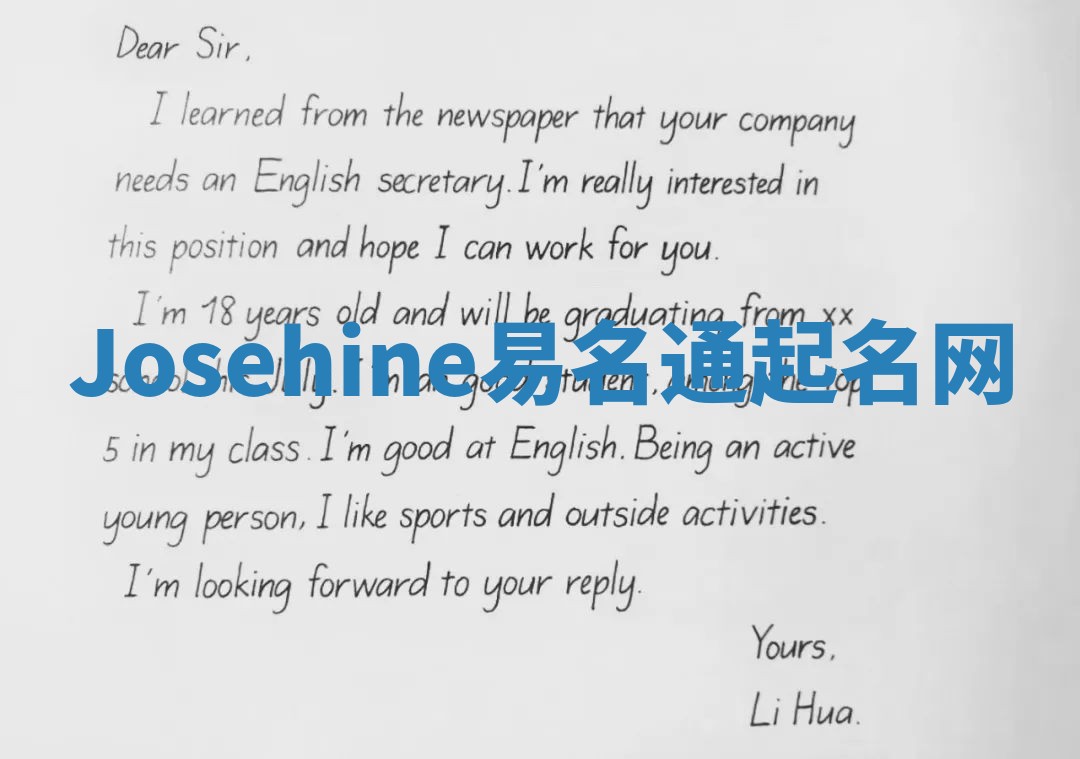 Dear Sir,
I learned from the newspaper that your company
needs an English secretary. I'm really interested in
this position and hope I can work for you.
I'm 18 years old and will be graduating from xx
Josehine易名通起名网
school this July. I'm a good student, among the top
5 in my class. I'm good at English. Being an active
young person, I like sports and outside activities.
I'm looking forward to your reply.
Yours,
Li Hua.